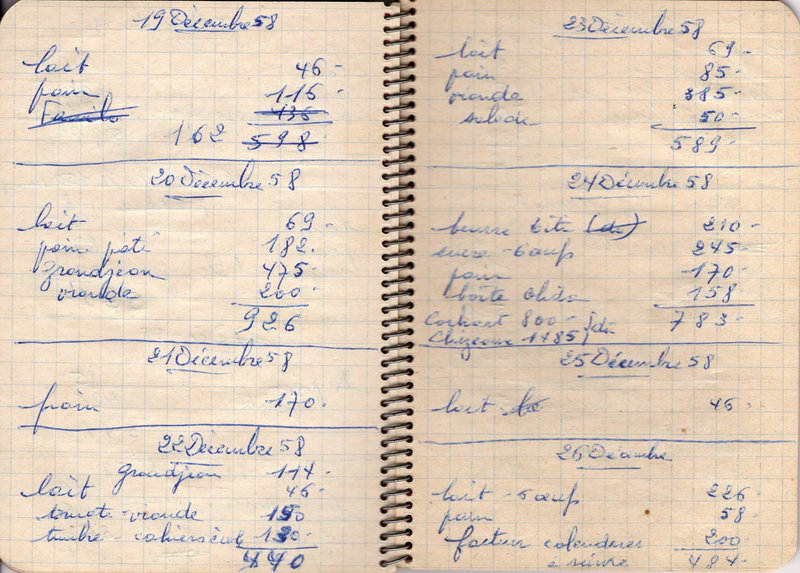 19 Décembre 58
lait 46-
pain 116-
Familo 436
162 598
20 Décembre 58
lait 69-
pain pâté 182.
grandjean 475-
viande 200-
926
21 Décembre 58
pain 170-
22 Décembre 58
grandjean 114-
lait 46-
tomate-viande 150
timbre-cahier 130-
440
23 Décembre 58
lait 69-
pain 85-
viande 385-
salade 50-
589-
24 Décembre 58
beurre (du) 210-
sucre-6 œufs 245-
pain 170-
boîte Olida 158-
800- du 783-
1485
25 Décembre 58
lait 46-
26 Décembre
lait-6 œufs 226-
pain 58-
facteur calendrier 200-
à suivre 484-